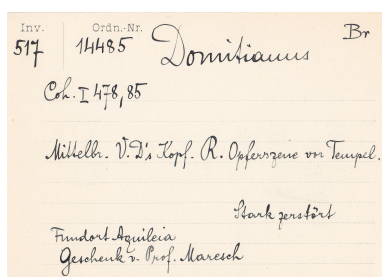 Inv. Ordn.-Nr. Br
517 14485 Domitianus
Coh. I 478,85
Mittelbr. V. D's Kopf. R. Opferszene vor Tempel.
Stark zerstört
Fundort Aquileia
Geschenk v. Prof. Maresch